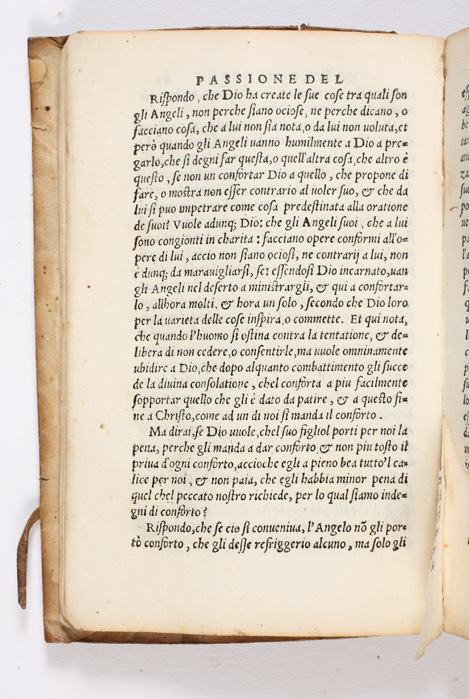 PASSIONE DEL
Rispondo, che Dio ha create le sue cose tra quali son
gli Angeli, non perche siano ociose, ne perche dicano, o
facciano cosa, che a lui non sia nota, o da lui non voluta, et
però quando gli Angeli uanno humilmente a Dio a pre-
garlo, che si degni far questa, o quell'altra cosa, che altro è
questo, se non un confortar Dio a quello, che propone di
fare, o mostra non esser contrario al uoler suo, & che da
lui si puo impetrare come cosa predestinata alla oratione
de suoi? Vuole adunq; Dio: che gli Angeli suoi, che a lui
sono congionti in charita: facciano opere conformi all'o-
pere di lui, accio non siano ociosi, ne contrarij a lui, non
è dunq; da marauigliarsi, se: essendosi Dio incarnato, uan
gli Angeli nel deserto a ministrargli, & qui a confortar-
lo, allhora molti, & hora un solo, secondo che Dio loro
per la varieta delle cose inspira, o commette. Et qui nota,
che quando l'huomo si ostina contra la tentatione, & de-
libera di non cedere, o consentirle, ma vuole omninamente
ubidire a Dio, che dopo alquanto combattimento gli succe
de la diuina consolatione, chel conforta a piu facilmente
sopportar quello che gli è dato da patire, & a questo fi-
ne a Christo, come ad un di noi si manda il conforto.
Ma dirai, se Dio uuole, chel suo figliol porti per noi la
pena, perche gli manda a dar conforto, & non piu tosto il
priua d'ogni conforto, accioche egli a pieno bea tutto'l ca-
lice per noi, & non paia, che egli habbia minor pena di
quel chel peccato nostro richiede, per lo qual siamo inde-
gni di conforto?
Rispondo, che se cio si conueniua, l'Angelo nõ gli por-
tò conforto, che gli desse refriggerio alcuno, ma solo gli